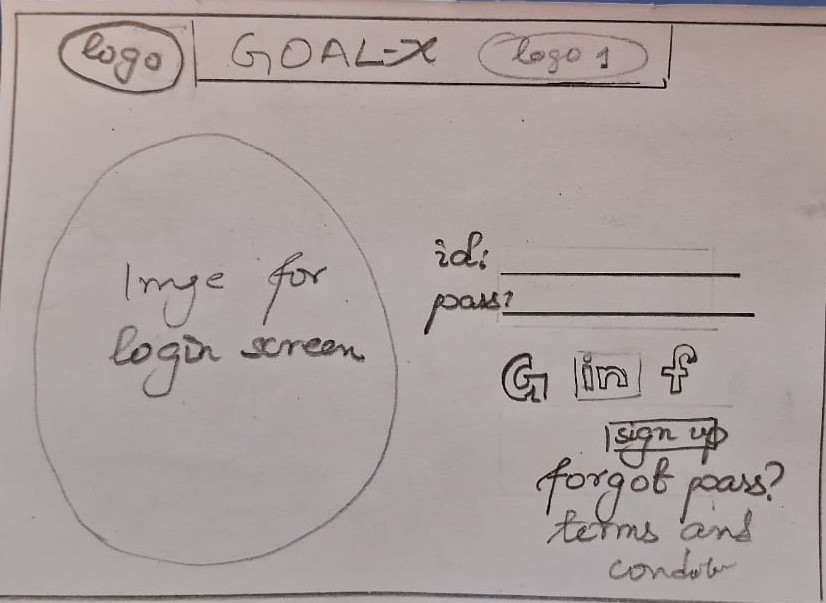 logo GOAL-X logo 1
Imge for
login screen
id:
pass:
G in f
sign up
forgot pass?
terms and